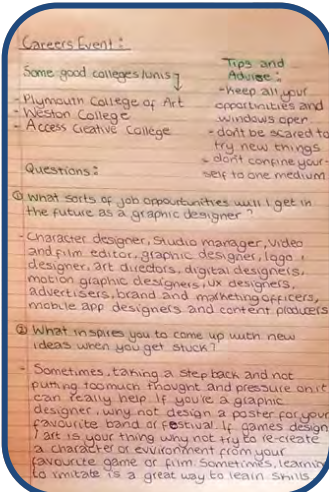 Careers Event:
Some good colleges/unis
- Plymouth College of Art
- Weston College
- Access Creative College
Tips and
Advise:
- Keep all your
opportunities and
windows open
- don't be scared to
try new things
- don't confine your-
self to one medium
Questions:
① What sorts of job oppourtunities will I get in
the future as a graphic designer?
- Character designer, Studio manager, Video
and film editor, graphic designer, logo
designer, art directors, digital designers,
motion graphic designers, UX designers,
advertisers, brand and marketing officers,
mobile app designers and content producers
② What inspires you to come up with new
ideas when you get stuck?
- Sometimes, taking a step back and not
putting too much thought and pressure on it
can really help. If you're a graphic
designer, why not design a poster for your
favourite band or festival. If games design
/ art is your thing why not try to re-create
a character or enviroment from your
favourite game or film. Sometimes, learning
to imitate is a great way to learn skills